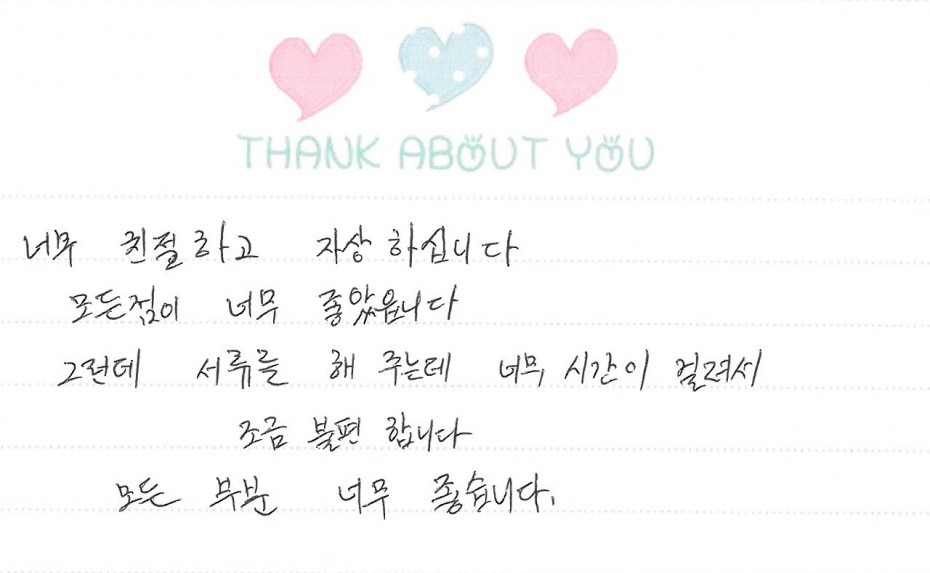 THANK ABOUT YOU
너무 친절하고 자상 하십니다
모든점이 너무 좋았읍니다
그런데 서류를 해 주는데 너무 시간이 걸려서
조금 불편 합니다
모든 부분 너무 좋습니다.